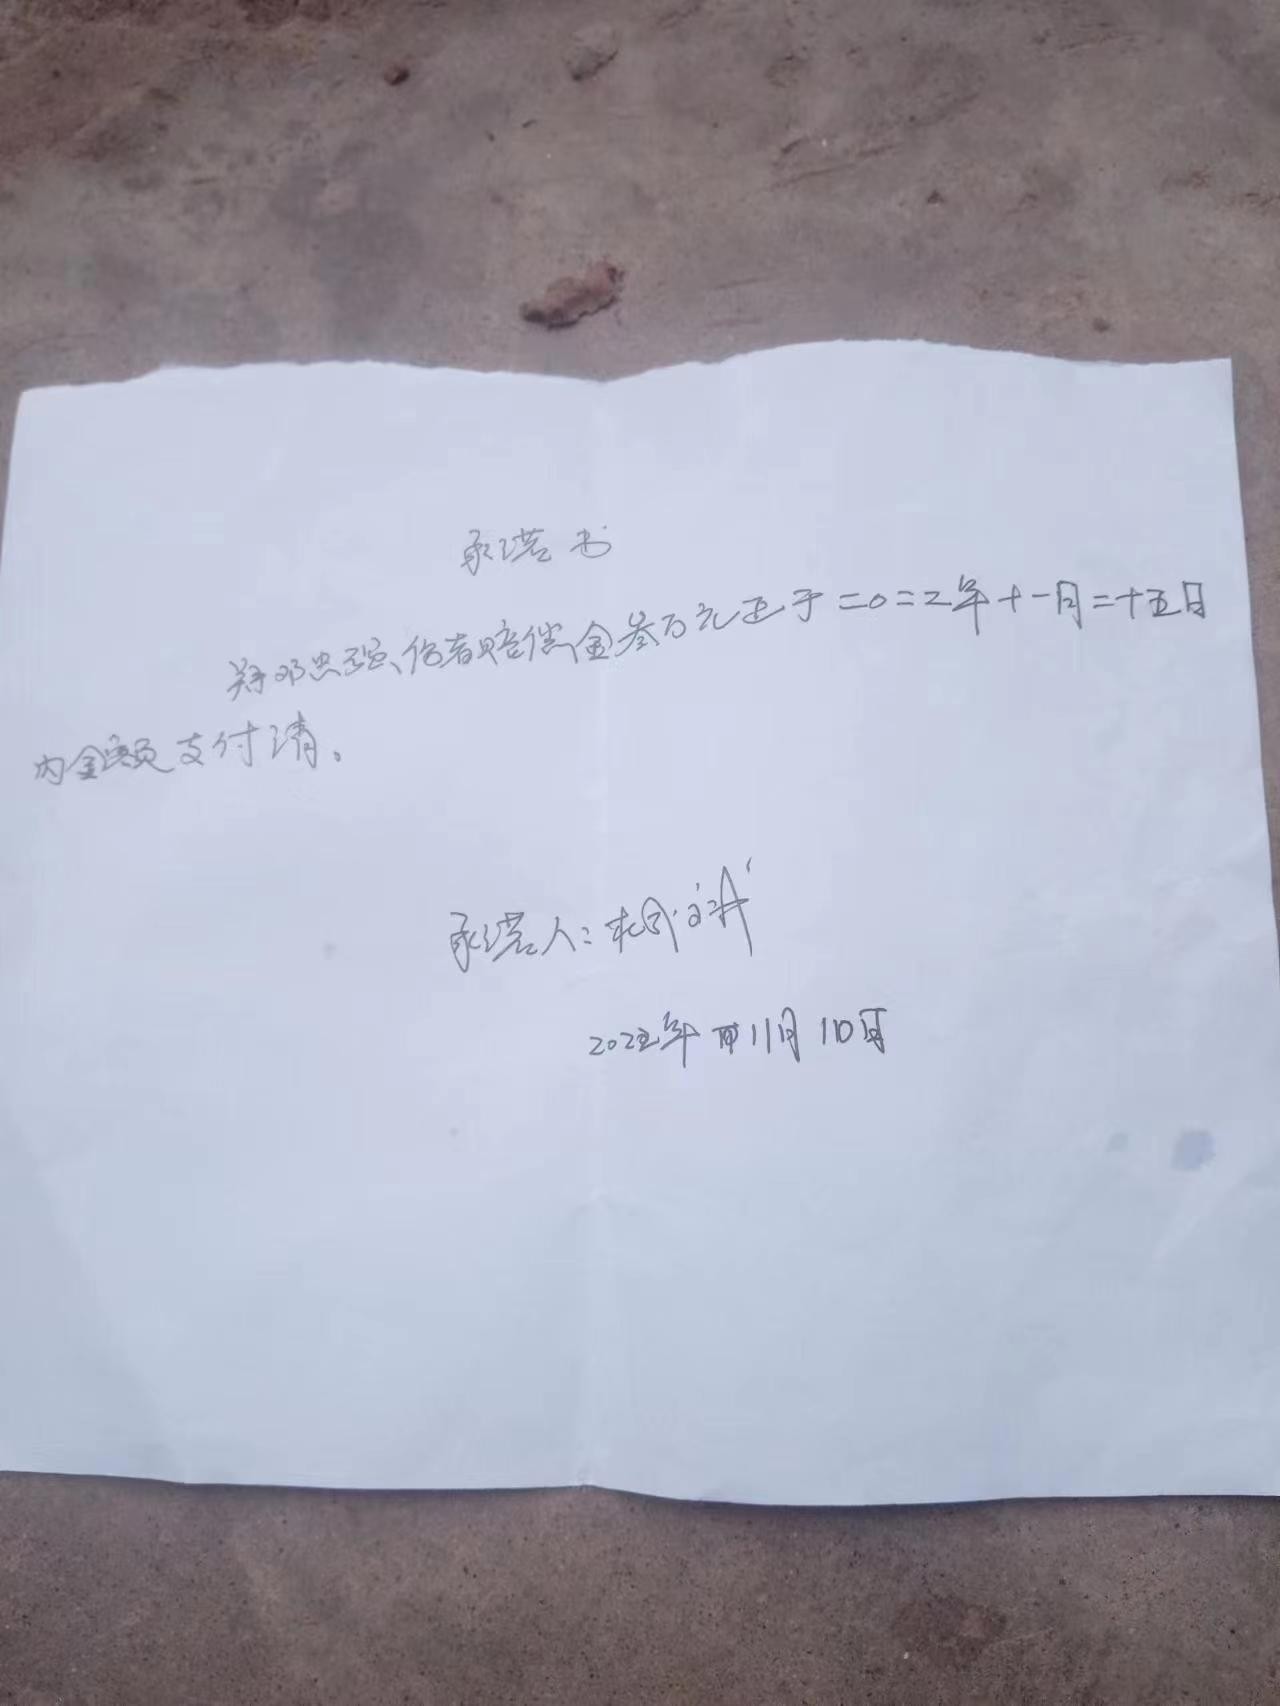 承诺书
邓忠强、伤者赔偿金叁万元正于二〇二二年十一月二十五日
内金额支付清。
承诺人:
2022年11月10日